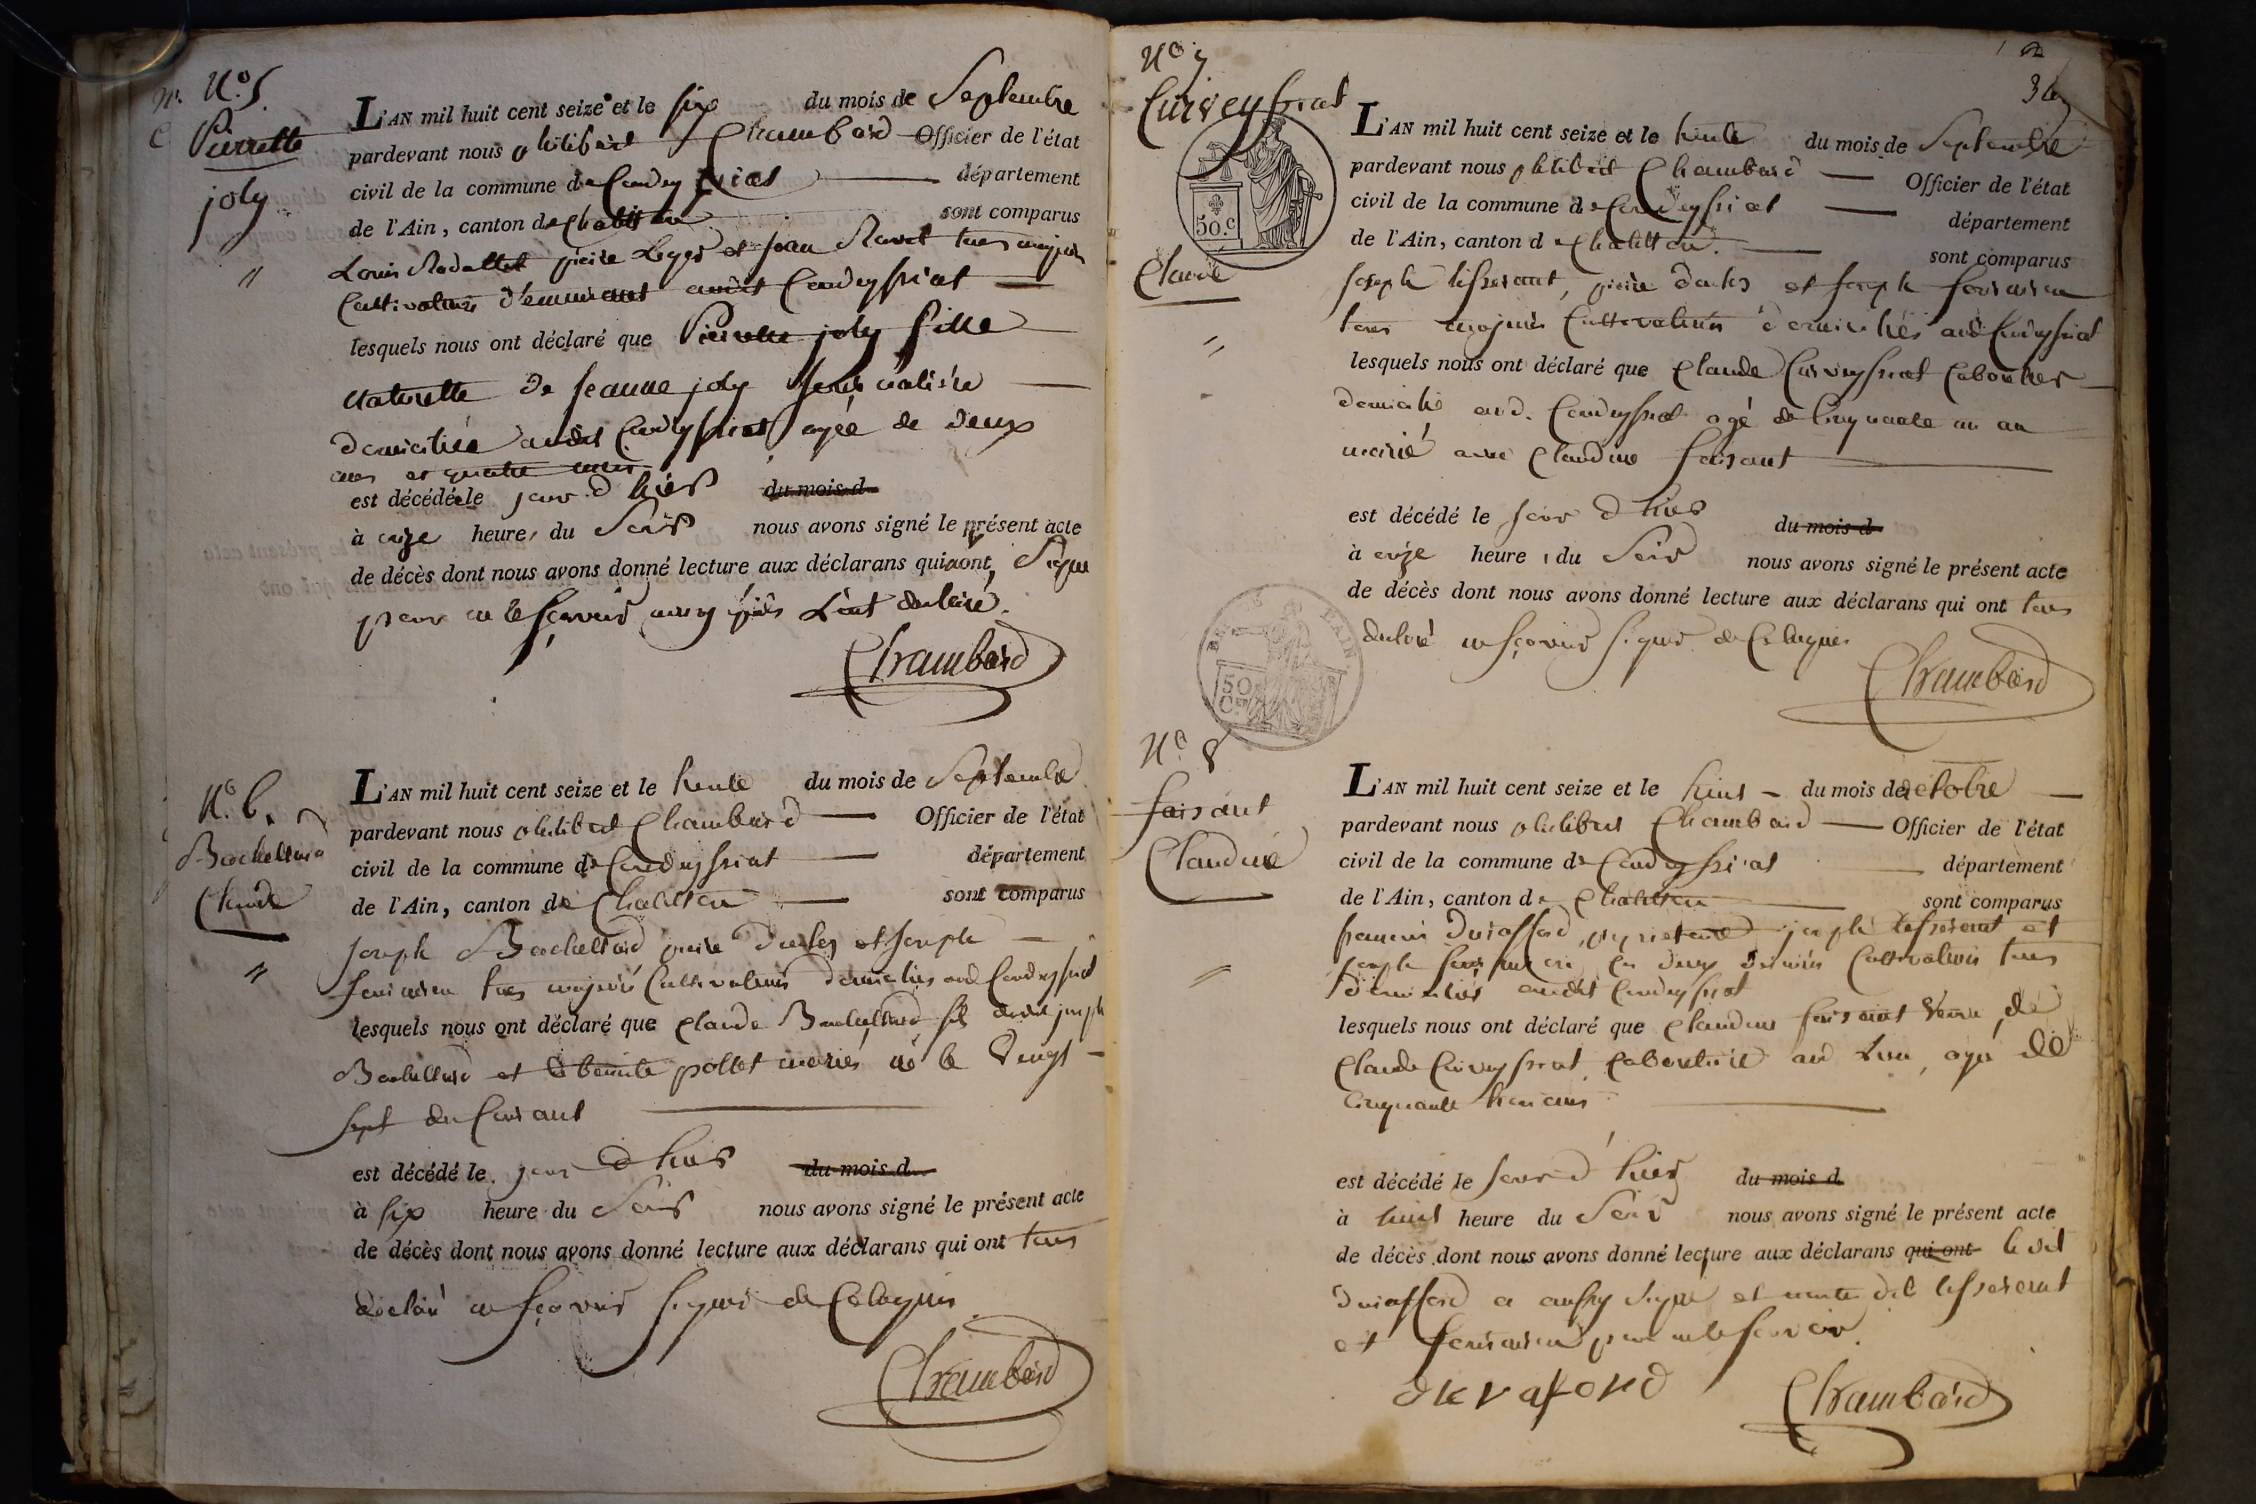 N.º 5.
Pierrette
joly
L'AN mil huit cent seize et le six du mois de Septembre
pardevant nous philibert Chambard Officier de l'état
civil de la commune de Condeyssiat département
de l'Ain, canton de Chatillon sont comparus
Louis Rodallet pierre Leger et jean Ravet tous majeurs
Cultivateurs audit Condeyssiat
lesquels nous ont déclaré que Pierrette joly fille
Naturelle de jeanne joly
domiciliée audit Condeyssiat agée de deux
ans et quatre mois
est décédée le jour d'hier du mois d
à onze heures du Soir nous avons signé le présent acte
de décès dont nous avons donné lecture aux déclarans qui n'ont Signé
pour ne le sçavoir
Chambard
N.º 6.
Bachellard
Claude
L'AN mil huit cent seize et le trente du mois de Septembre
pardevant nous philibert Chambard Officier de l'état
civil de la commune de Condeyssiat département
de l'Ain, canton de Chatillon sont comparus
joseph Bachellard pierre et joseph
tous majeurs Cultivateurs domiciliés aud Condeyssiat
lesquels nous ont déclaré que Claude Bachellard fils dudit joseph
Bachellard et pollet mariés né le Vingt
sept du Courant
est décédé le jour d'hier du mois d
à six heure du Soir nous avons signé le présent acte
de décès dont nous avons donné lecture aux déclarans qui ont tous
déclaré ne sçavoir signer de Ce Requis
Chambard
N.º 7
Curveyssiat
Claude
50.c
L'AN mil huit cent seize et le trente du mois de Septembre
pardevant nous philibert Chambard Officier de l'état
civil de la commune de Condeyssiat département
de l'Ain, canton de Chatillon sont comparus
joseph tisserant, pierre et joseph
tous majeurs Cultivateurs domiciliés audit Condeyssiat
lesquels nous ont déclaré que Claude Curveyssiat
domicilié aud. Condeyssiat agé de Cinquante un an
marié avec Claudine faisant
est décédé le jour d'hier du mois d
à onze heure du Soir nous avons signé le présent acte
de décès dont nous avons donné lecture aux déclarans qui ont tous
déclaré ne sçavoir signer de Ce Requis
50
C.
Chambard
N.º 8
faisant
Claudine
L'AN mil huit cent seize et le huit du mois de octobre
pardevant nous philibert Chambard Officier de l'état
civil de la commune de Condeyssiat département
de l'Ain, canton de Chatillon sont comparus
francois Durafford, proprietaire joseph tisserant et
joseph les deux derniers Cultivateurs tous
domiciliés audit Condeyssiat
lesquels nous ont déclaré que Claudine faisant Veuve de
Claude Curveyssiat, aud Lieu, agée de
Cinquante trois ans
est décédé le jour d'hier du mois d
à huit heure du Soir nous avons signé le présent acte
de décès dont nous avons donné lecture aux déclarans qui ont ledit
Durafford a aussy Signé et non tisserant
et pour ne le sçavoir.
durafford
Chambard